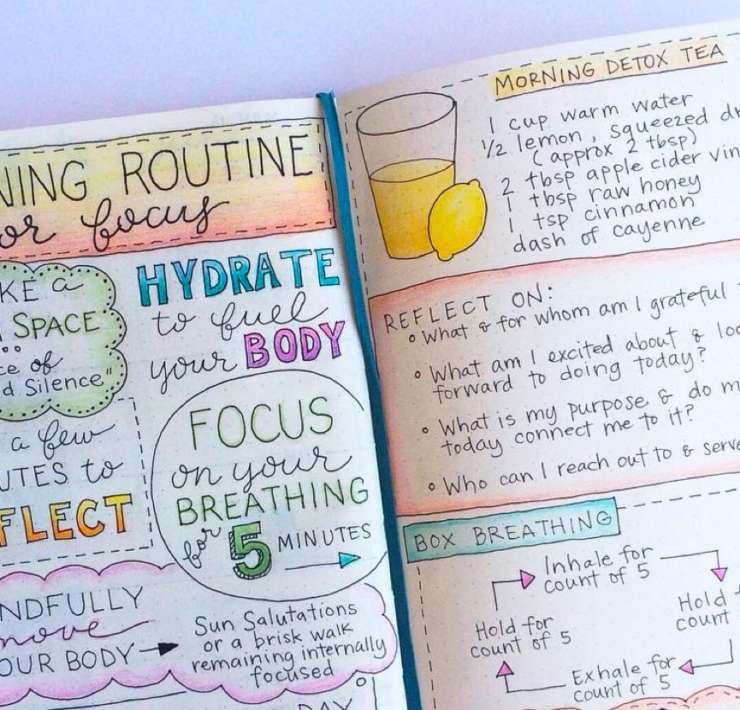 NING ROUTINE
or focus
KE a
SPACE
ce of
d Silence"
HYDRATE
to fuel
your BODY
a few
UTES to
FLECT
FOCUS
on your
BREATHING
for 5 MINUTES
NDFULLY
move
OUR BODY
Sun Salutations
or a brisk walk
remaining internally
focused
DAY
MORNING DETOX TEA
1 cup warm water
1/2 lemon, squeezed dr
(approx 2 tbsp)
2 tbsp apple cider vin
1 tbsp raw honey
1 tsp cinnamon
dash of cayenne
REFLECT ON:
• What & for whom am I grateful
• What am I excited about & loo
forward to doing today?
• What is my purpose & do m
today connect me to it?
• Who can I reach out to & serve
BOX BREATHING
Inhale for
count of 5
Hold
count
Exhale for
count of 5
Hold for
count of 5